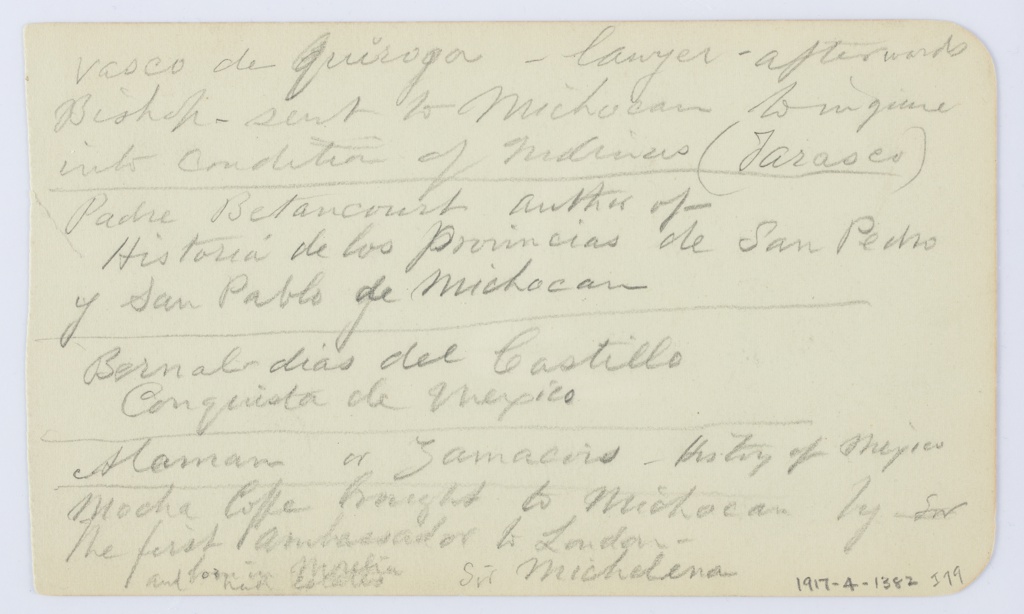 Vasco de Quiroga - lawyer - afterwards
Bishop - sent to Michocan to inquire
into condition of Indians (Tarasco)
Padre Betancourt author of
Historia de los Provincias de San Pedro
y San Pablo de Michocan
Bernal dias del Castillo
Conquista de Mexico
Alaman or Zamacois - History of Mexico
Mocha Coffe brought to Michocan by
the first ambassador to London -
and born in had estates
Sir Michelena
1917-4-1382 J79